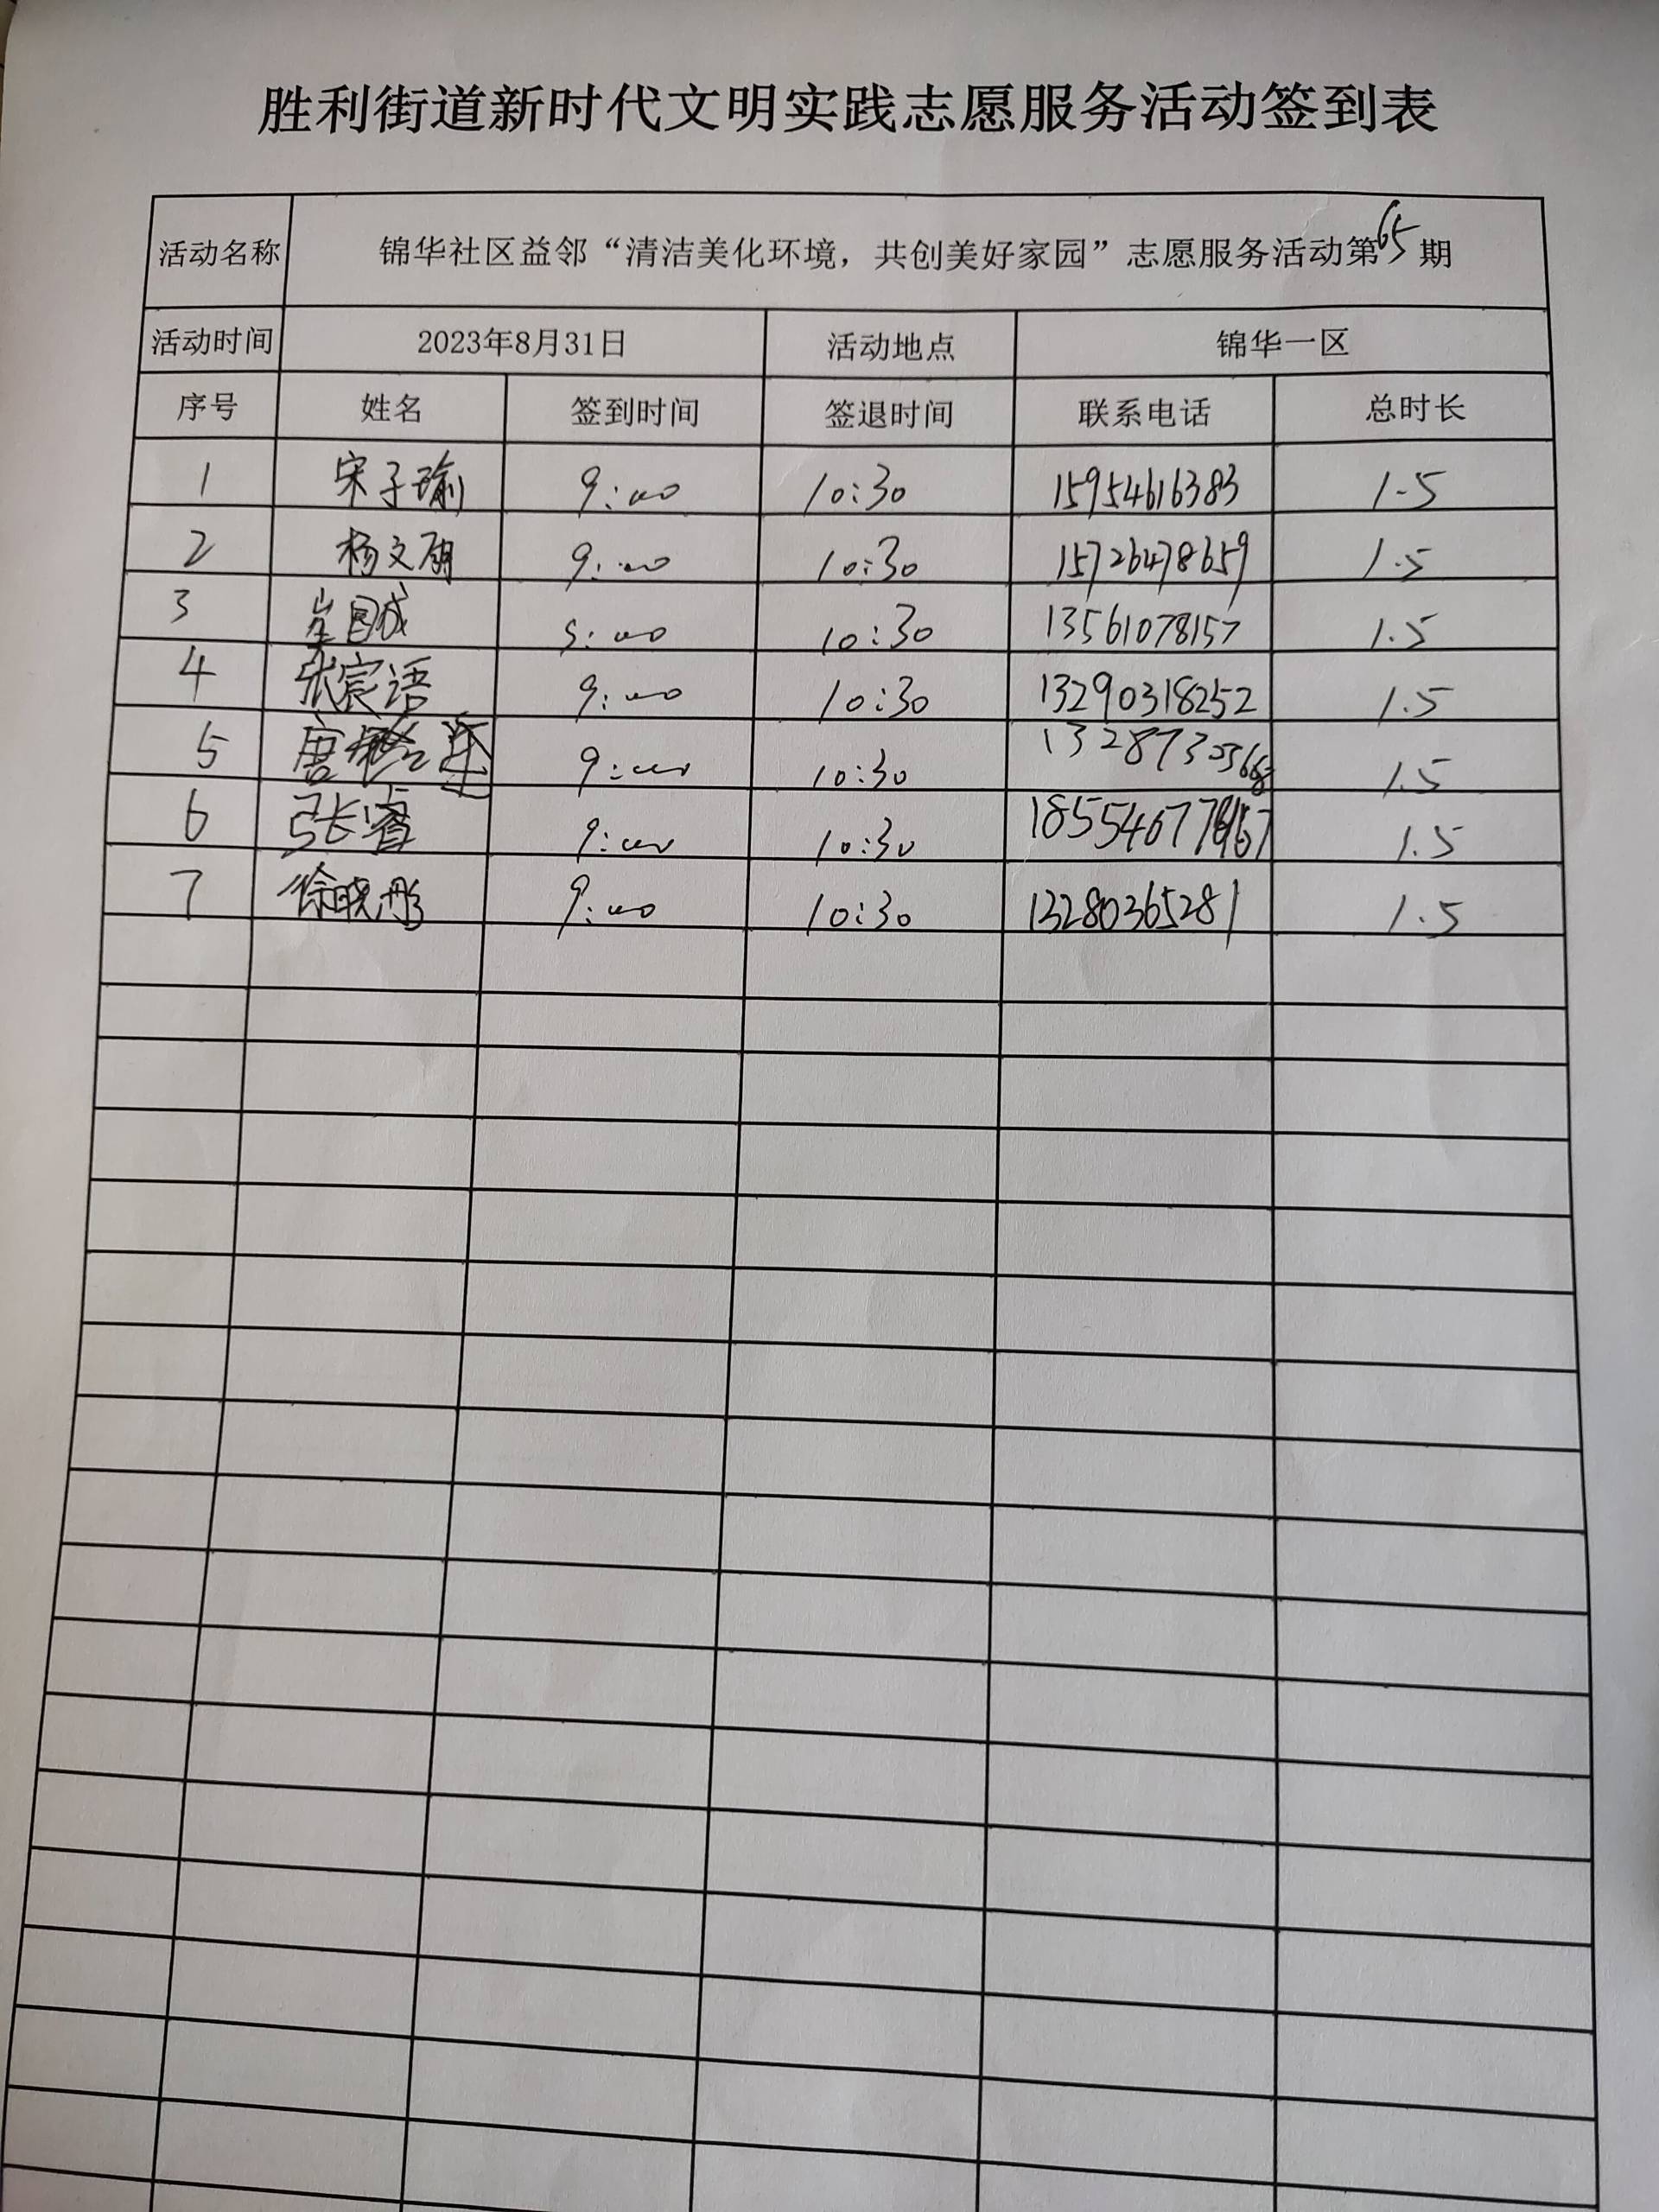 胜利街道新时代文明实践志愿服务活动签到表
活动名称 锦华社区益邻“清洁美化环境，共创美好家园”志愿服务活动第65期
活动时间 2023年8月31日 活动地点 锦华一区
序号 姓名 签到时间 签退时间 联系电话 总时长
1 宋子瑜 9:00 10:30 15954616383 1.5
2 杨文 9:00 10:30 15726478659 1.5
3 崔国成 9:00 10:30 13561078157 1.5
4 张宸语 9:00 10:30 13290318252 1.5
5 唐 9:00 10:30 1.5
6 张睿 9:00 10:30 1.5
7 徐晓彤 9:00 10:30 13280365281 1.5